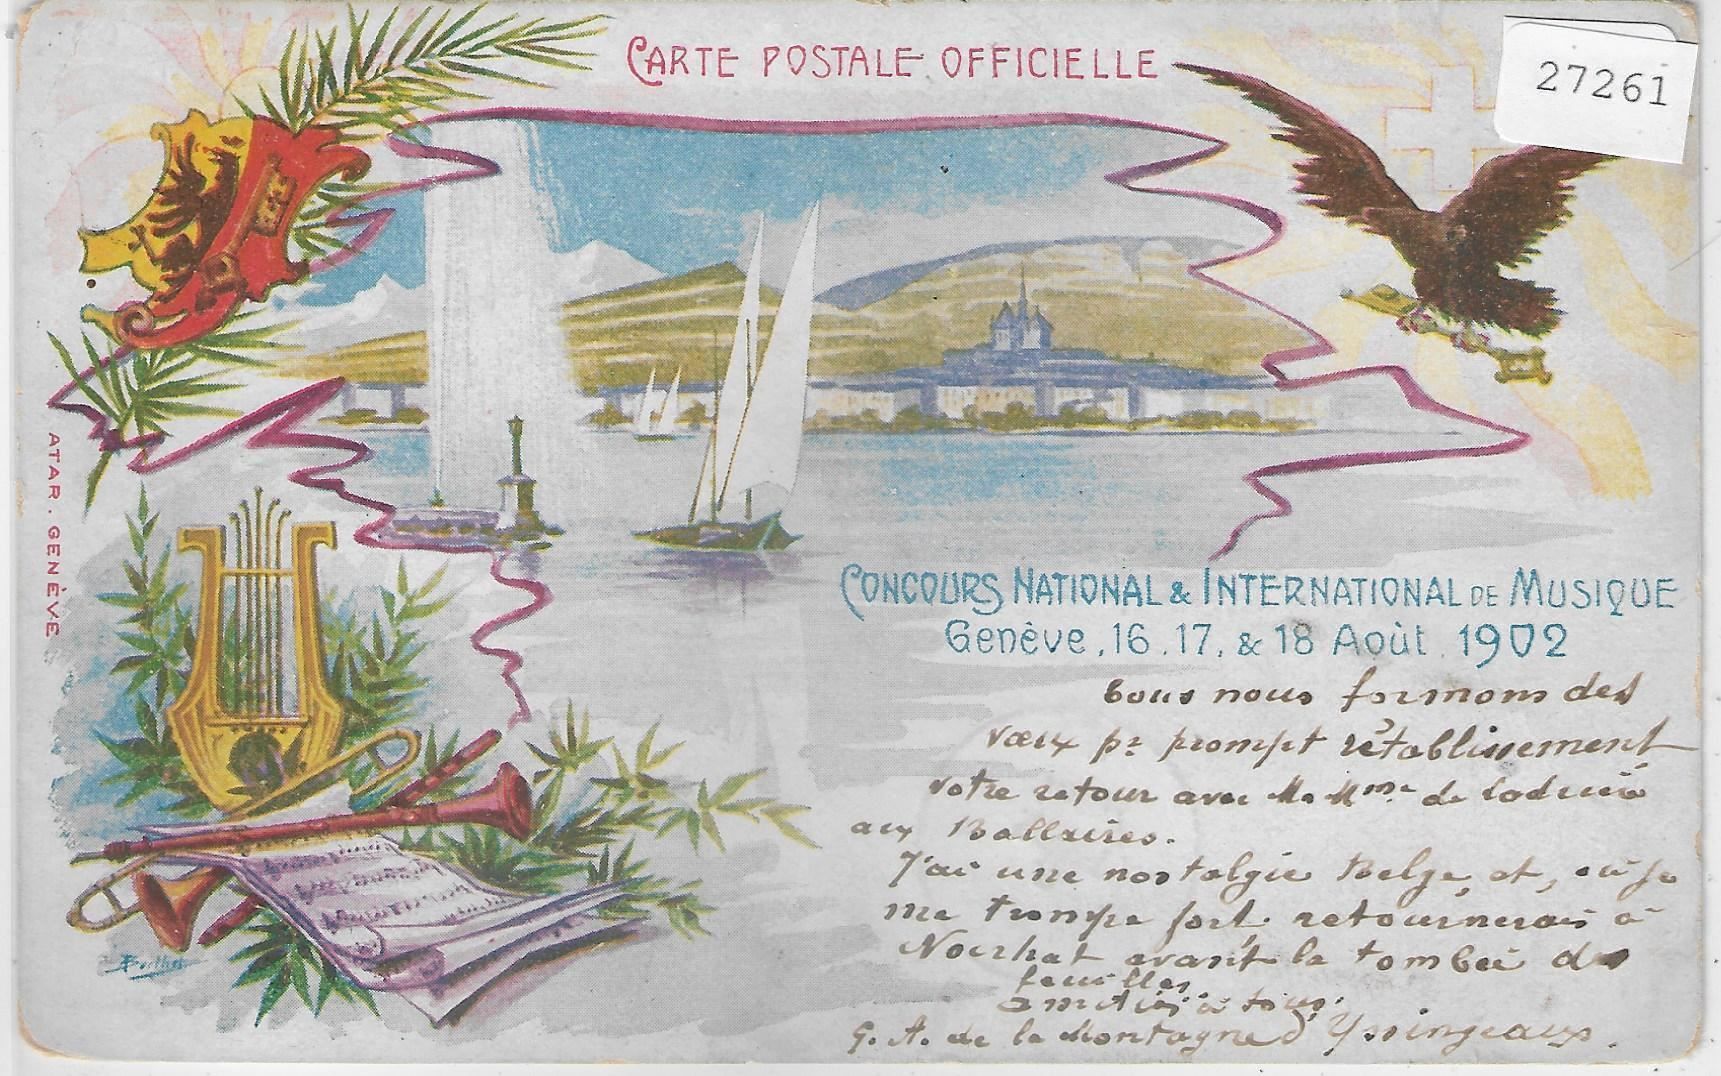 CARTE POSTALE OFFICIELLE
27261
ATAR . GENÈVE
CONCOURS NATIONAL & INTERNATIONAL DE MUSIQUE
Genève, 16. 17, & 18 Août . 1902
tous nous formons des
vœux pr prompt rétablissement
votre retour avec M. Mme de
aux
J'ai une nostalgie Belge, et, où je
me trompe fort, retournerais à
avant la tombée des
feuilles
amitiés à tous.
G. A. de la Montagne d'Yssingeaux.